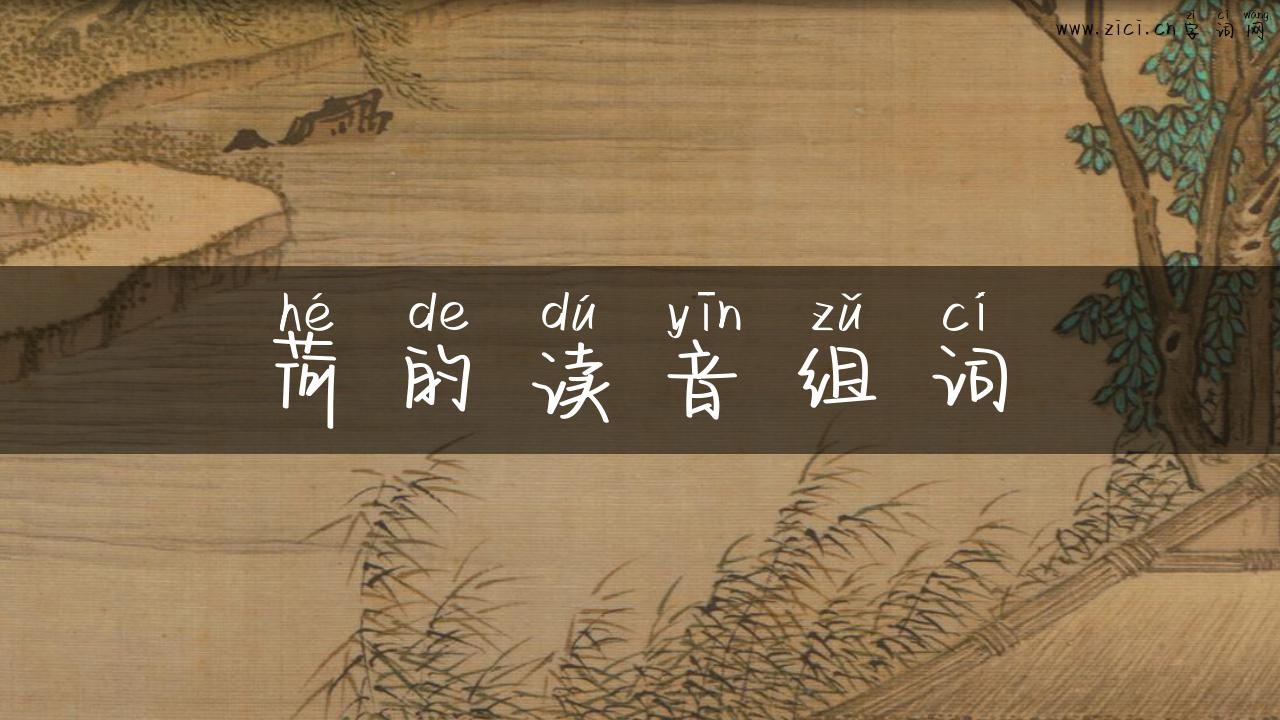 zì cí wǎng
www.zici.cn字词网
hé de dú yīn zǔ cí
荷的读音组词